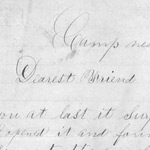 Camp ne
Dearest Friend
on at last it su
opened it and foun